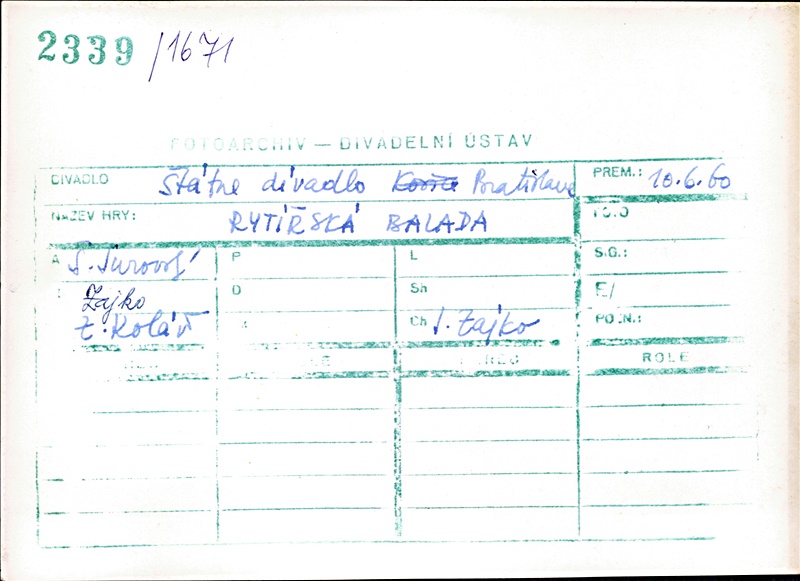 2339 /1671
FOTOARCHIV — DIVADELNÍ ÚSTAV
DIVADLO Státne divadlo Košice Bratislava PREM.: 10.6.60
NÁZEV HRY: RYTÍŘSKÁ BALADA
A Š. Jurovský P L S.G.:
Zajko D Sh E/
Z. Kolář Ch J. Zajko POZN.:
ROLE